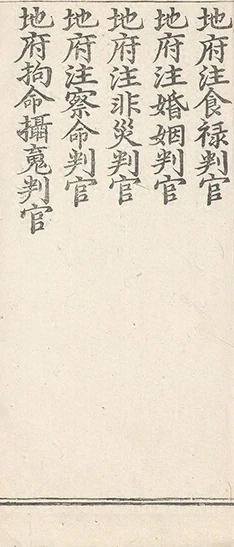 地府注食禄判官
地府注婚姻判官
地府注非災判官
地府注察命判官
地府拘命攝䰟判官